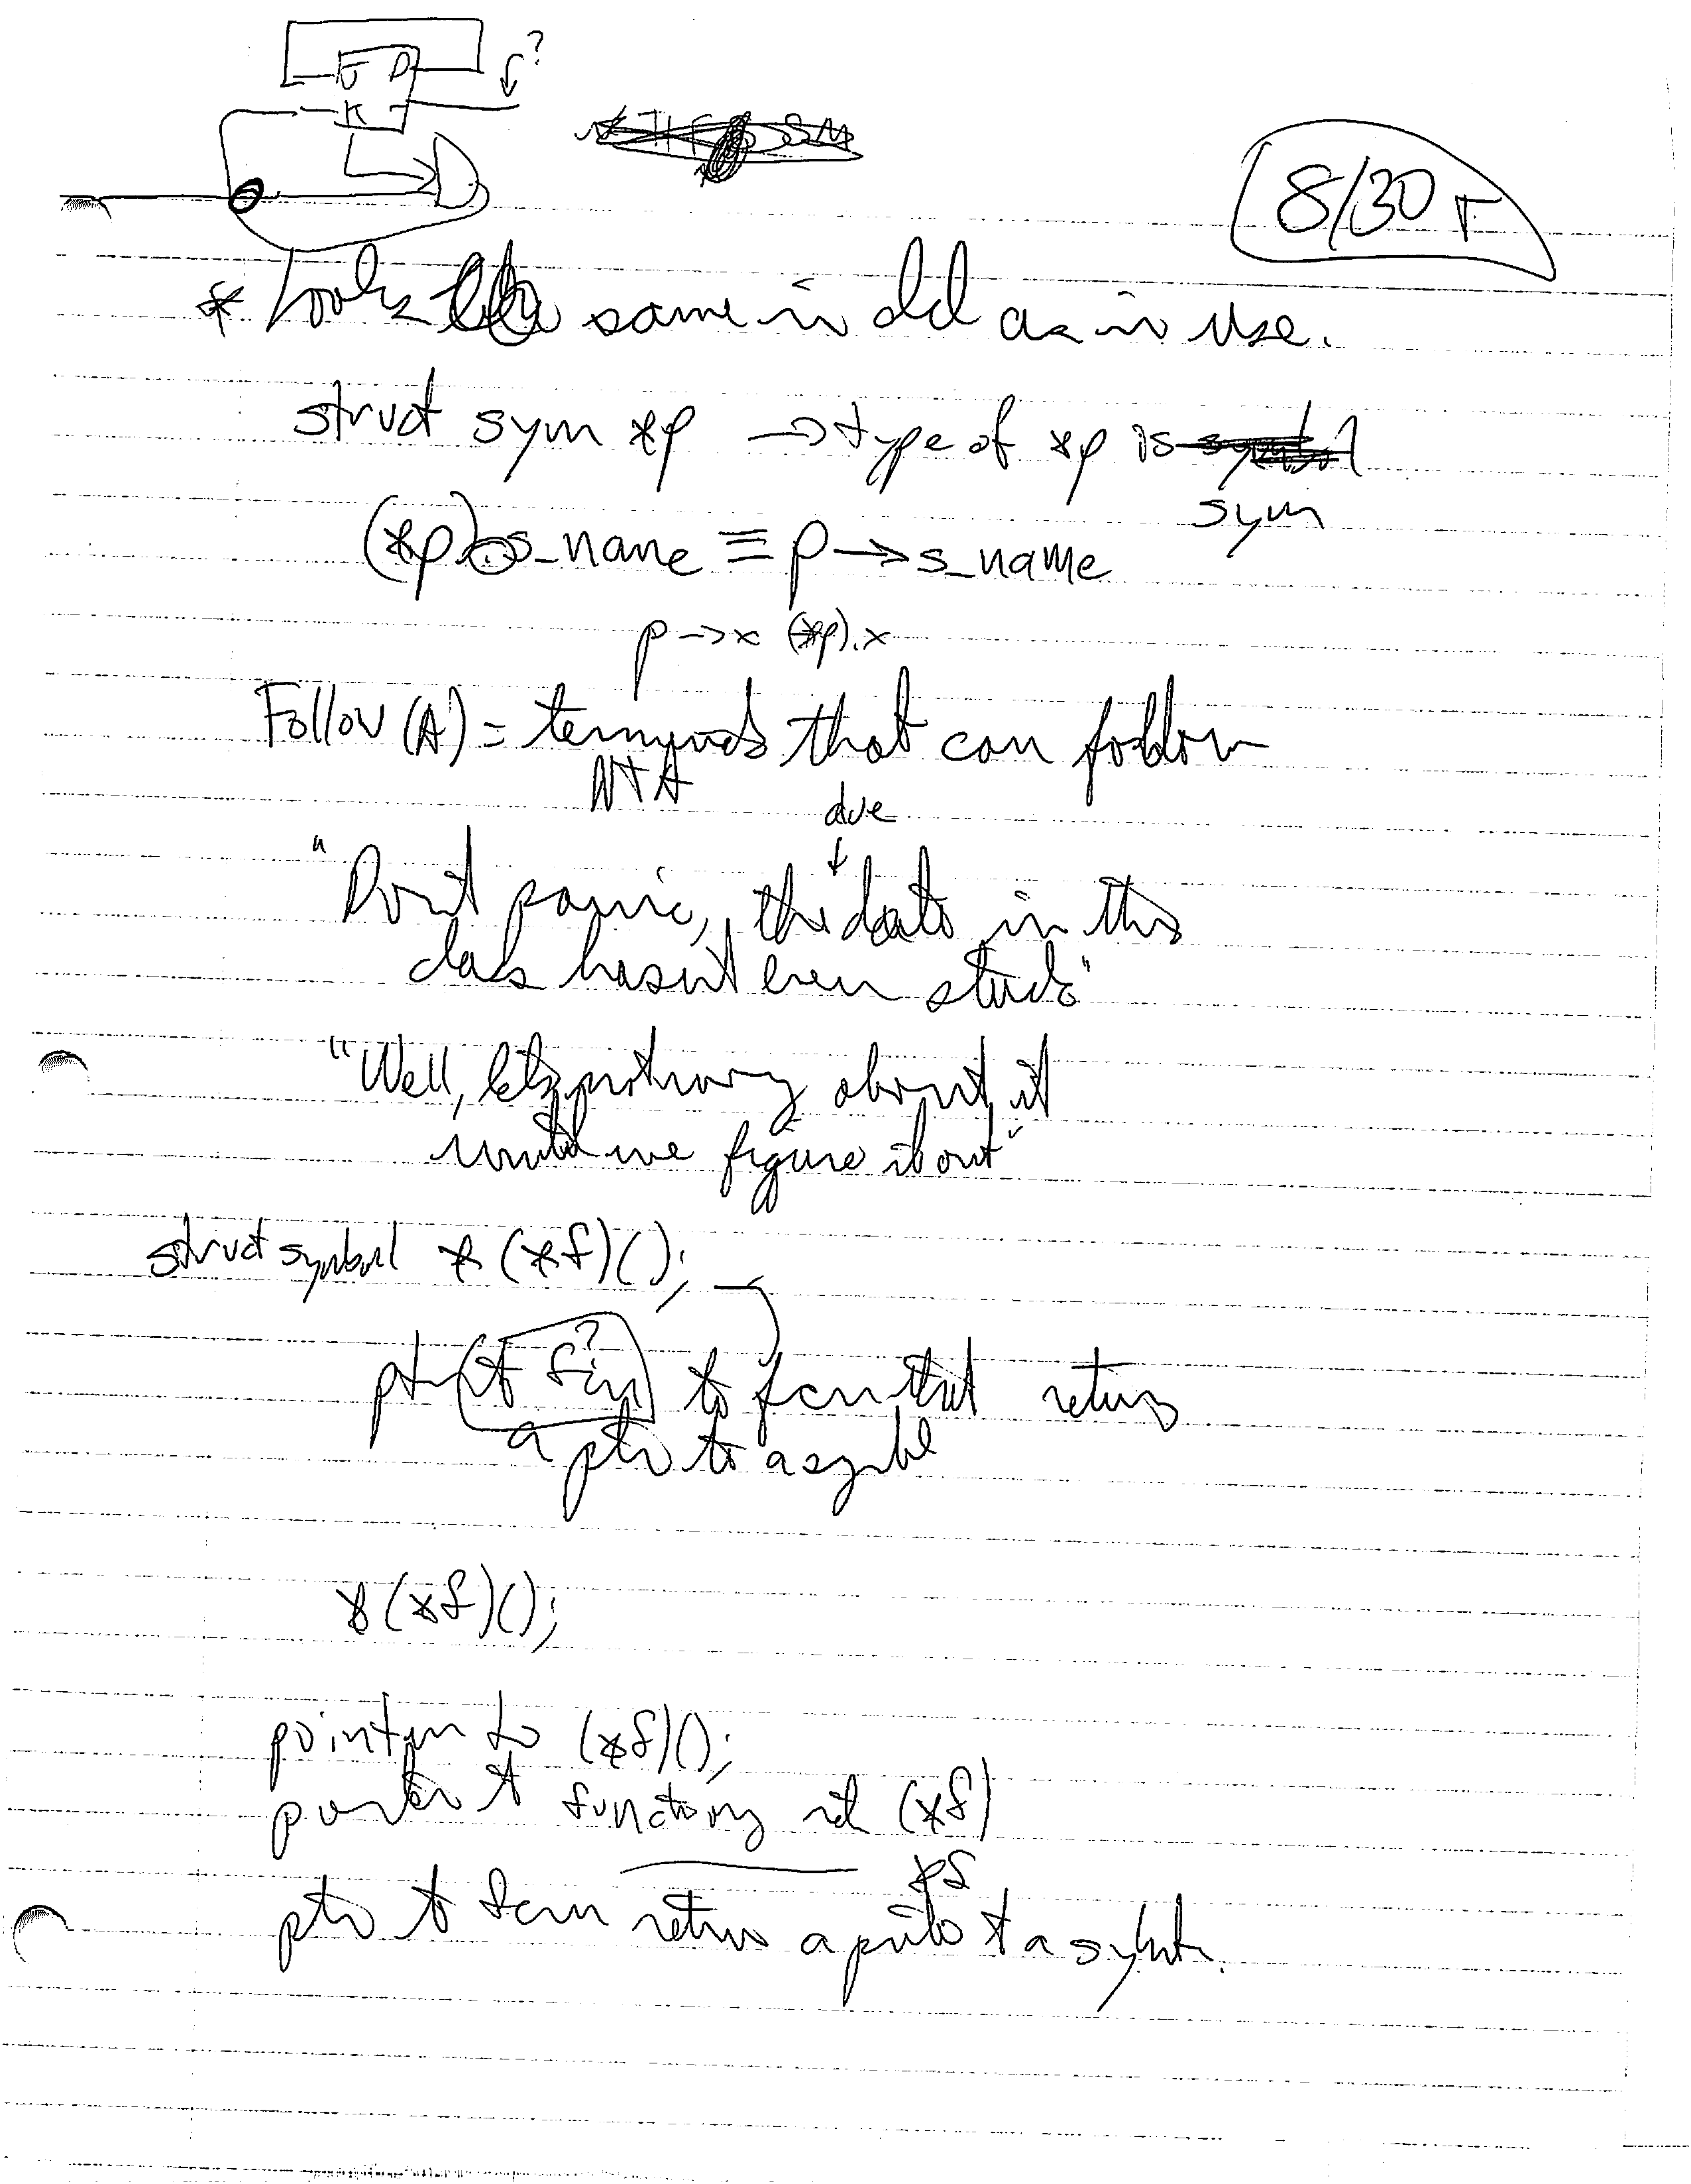 J D ?
K
8/30 T
* Looks the same in decl as in use.
struct sym *p → type of *p is
sym
(*p).s_name ≡ p→s_name
p→x (*p).x
Follow (A) = terminals that can follow
NT A
due
"Don't panic, the date in this
class hasn't even started"
"Well, let's not worry about it
until we figure it out"
struct symbol *(*f)();
?
ptr to fcn to fcn that returns
a ptr to a symbol
*(*f)();
pointer to (*f)();
pointer to function (*f)
*f
ptr to fcn return a pointer to a symbol.